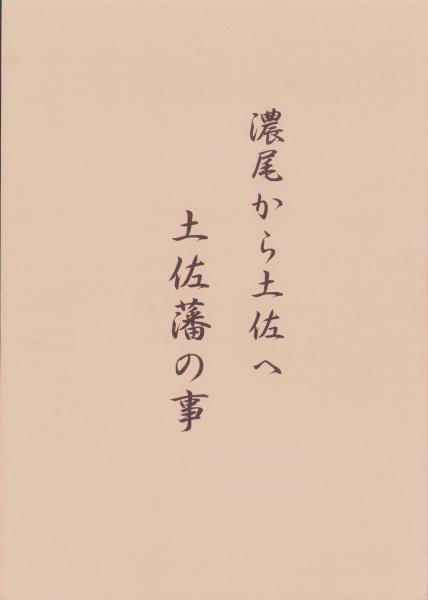 濃尾から土佐へ
土佐藩の事